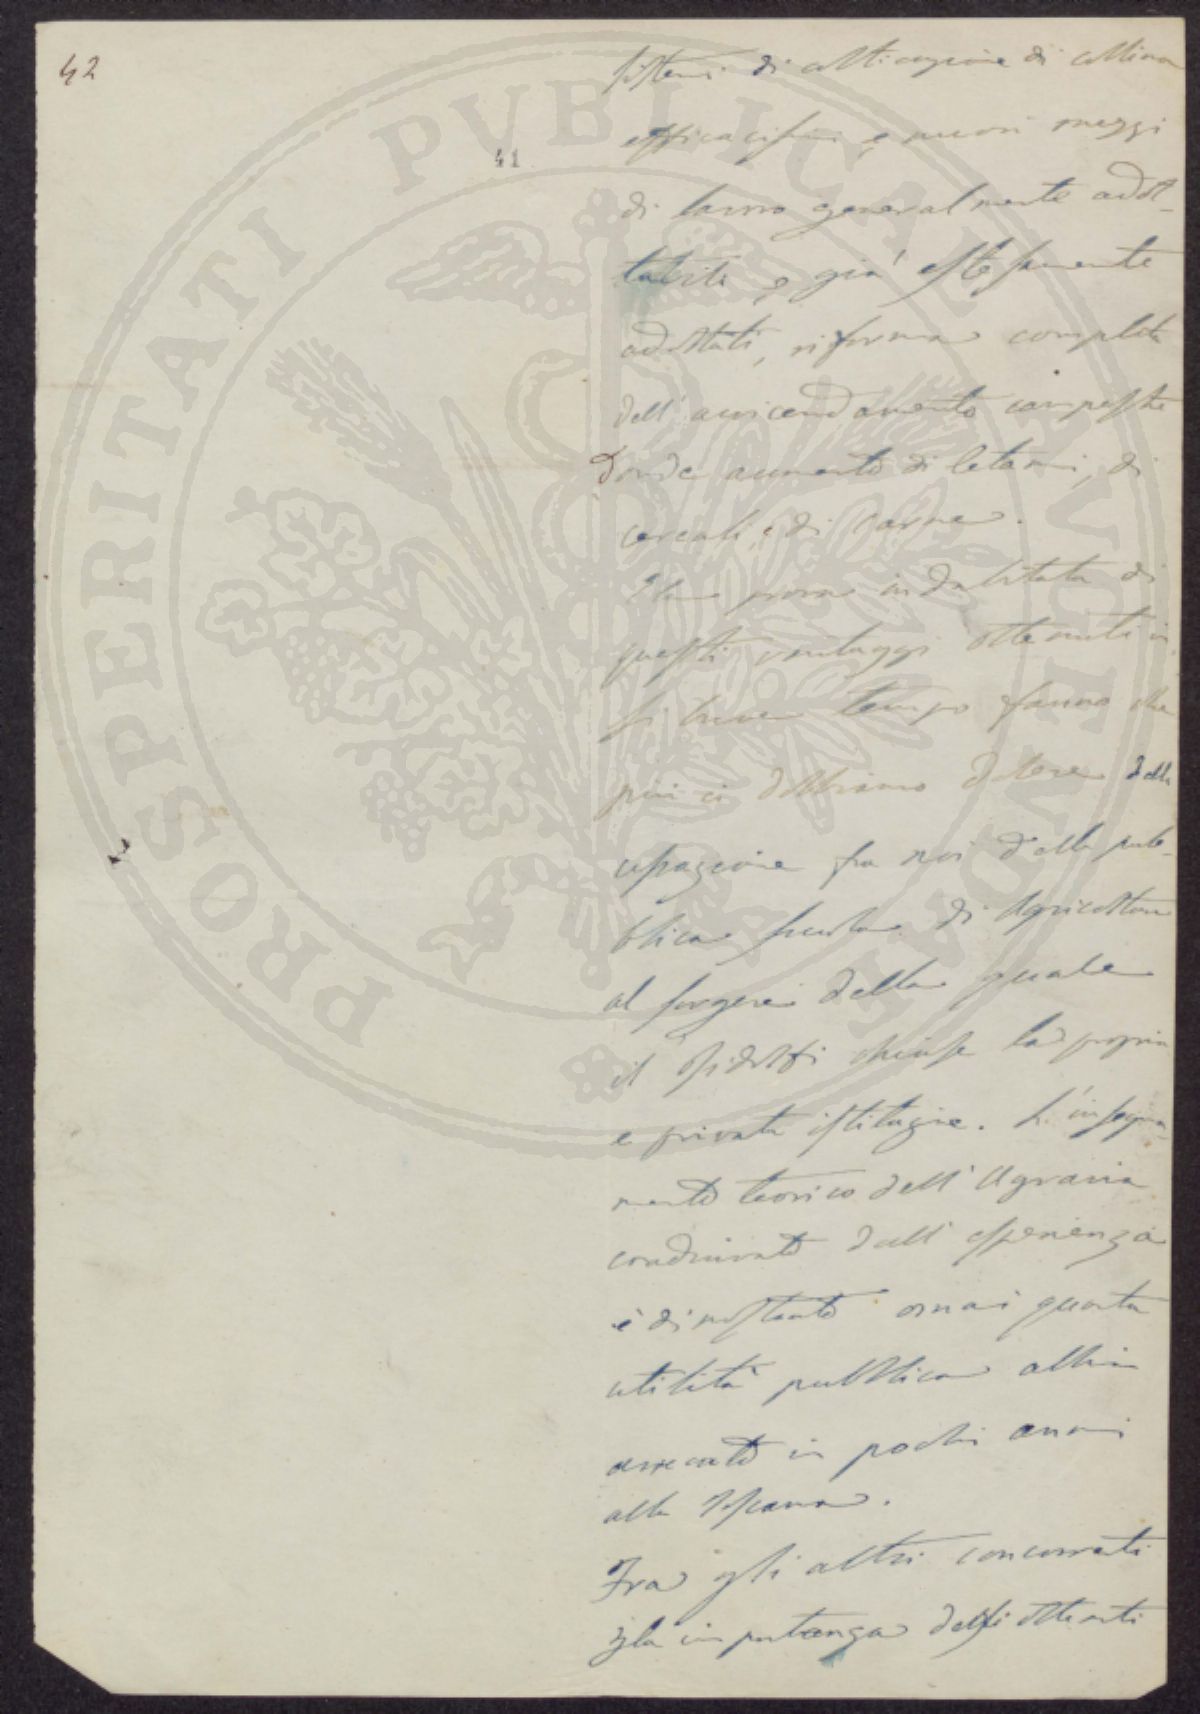 42
41
sistemi di coltivazione di collina
efficacissimi e nuovi mezzi
di lavoro generalmente adot-
tabili e già estesamente
adottati, riforma completa
dell'avvicendamento campestre
donde aumento di letami, di
cereali, e di carne.
La prova indubitata di
questi vantaggi ottenuti in
sì breve tempo fanno che
più ci dobbiamo dolere della
cessazione fra noi della pub-
blica scuola di Agricoltura
al sorgere della quale
il Ridolfi chiuse la propria
e privata istituzione. L'insegna-
mento teorico dell'Agraria
coadiuvato dall'esperienza
è dimostrato omai quanta
utilità pubblica abbia
arrecato in pochi anni
alla Toscana.
Fra gli altri concorrenti
la importanza degli ottenuti
PROSPERITATI PVBLICAE AVGENDAE